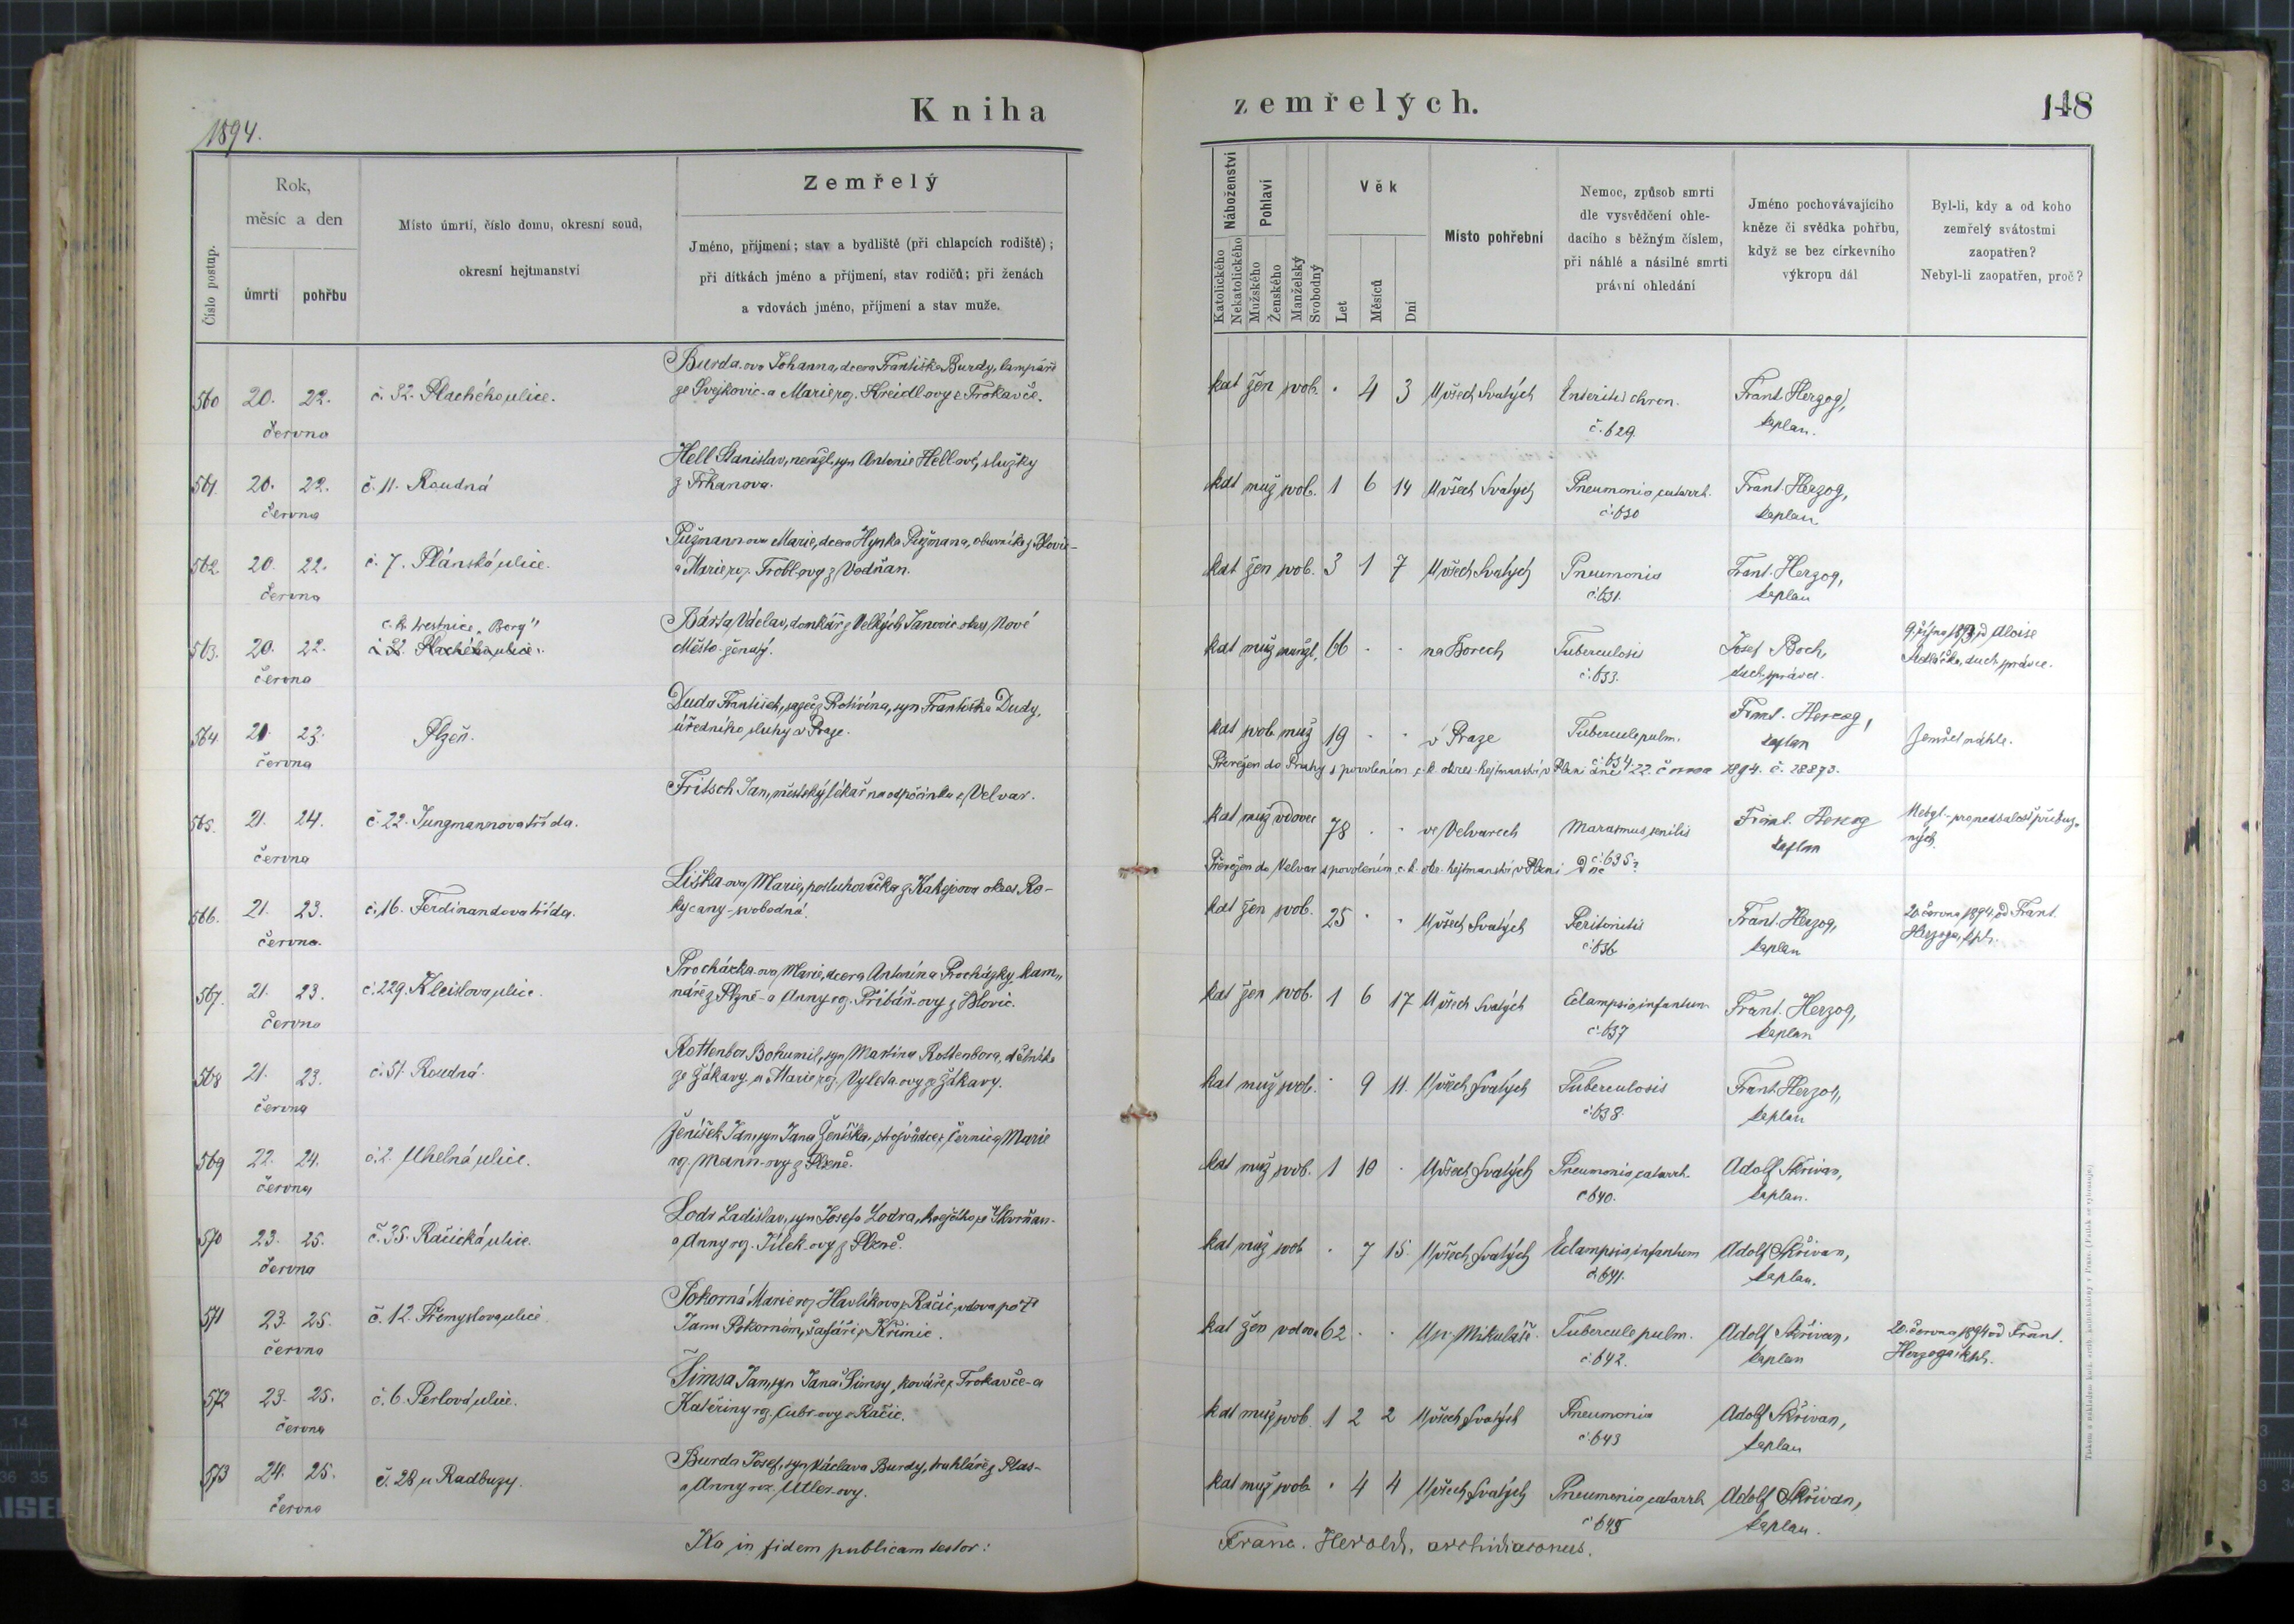 Kniha
zemřelých.
148
1894.
Číslo postup.
Rok,
měsíc a den
úmrtí
pohřbu
Místo úmrtí, číslo domu, okresní soud,
okresní hejtmanství
Zemřelý
Jméno, příjmení; stav a bydliště (při chlapcích rodiště);
při dítkách jméno a příjmení, stav rodičů; při ženách
a vdovách jméno, příjmení a stav muže.
Náboženství
Katolického
Nekatolického
Pohlaví
Mužského
Ženského
Manželský
Svobodný
Věk
Let
Měsíců
Dní
Místo pohřební
Nemoc, způsob smrti
dle vysvědčení ohle-
dacího s běžným číslem,
při náhlé a násilné smrti
právní ohledání
Jméno pochovávajícího
kněze či svědka pohřbu,
když se bez církevního
výkropu dál
Byl-li, kdy a od koho
zemřelý svátostmi
zaopatřen?
Nebyl-li zaopatřen, proč?
560 20. 22. června
č. 32. Plachého ulice.
Burda-ova Johanna, dcera Františka Burdy, lampáře
ze Svejkovic-a Marie roz. Kreidl-ovy z Trokavče.
kat žen svob. · 4 3 U všech Svatých Enteritis chron. Frant. Herzog,
č. 629. kaplan.
561. 20. 22. června
č. 11. Roudná
Hell Stanislav, nemžl. syn Antonie Hell-ové, služky
z Trhanova.
kat muž svob. 1 6 14 U všech Svatých Pneumonia catarrh. Frant. Herzog,
č. 630 kaplan.
562. 20. 22. června
č. 7. Plánská ulice.
Pužmann-ova Marie, dcera Hynka Pužmana, obuvníka z Blovic-
a Marie roz. Trobl-ovy z Vodňan.
kat žen svob. 3 1 7 U všech Svatých Pneumonia Frant. Herzog,
č. 631. kaplan
563. 20. 22. června
c. k. trestnice „Bory"
č. 32. Plachého ulice.
Bárta Václav, domkář z Velkých Janovic okres Nové
Město-ženatý.
kat muž manžl. 66 · · na Borech Tuberculosis Josef Boch,
č. 633. duch. správce.
9. října 1893 od Aloise
duch. správce.
564. 21. 23. června
Plzeň.
Duda František, z Protivína, syn Františka Dudy,
úředního sluhy v Praze.
kat svob. muž 19 · · v Praze Tubercule pulm. Frant. Herzog,
č. 634. kaplan
Zemřel náhle.
Převezen do Prahy s povolením c. k. okres. hejtmanství v Plzni dne 22. června 1894. č. 28873.
565. 21. 24. června
č. 22. Jungmannova třída.
Fritsch Jan, městský lékař na odpočinku z Velvar.
kat muž vdovec 78 · · ve Velvarech Marasmus senilis Frant. Herzog
č. 635. kaplan
Nebyl-pro nedbalost příbuz-
ných.
Převezen do Velvar s povolením c. k. okr. hejtmanství v Plzni
566. 21. 23. června.
č. 16. Ferdinandova třída.
Liška-ova Marie, posluhovačka z Kakejcova okres Ro-
kycany-svobodná.
kat žen svob. 25 · · U všech Svatých Peritonitis Frant. Herzog,
č. 636 kaplan
20. června 1894 od Frant.
Herzoga, kpl.
567. 21. 23. června
č. 229. Kleislova ulice.
Procházka-ova Marie, dcera Antonína Procházky, kam-
náře z Plzně-a Anny roz. Pribáň-ovy z Blovic.
kat žen svob. 1 6 17 U všech Svatých Eclampsia infantum Frant. Herzog,
č. 637 kaplan
568 21. 23. června
č. 51. Roudná.
Rottenbor Bohumil, syn Martina Rottenbora, dělníka
ze Žákavy a Marie roz. Vyleta-ovy z Žákavy.
kat muž svob. · 9 11. U všech Svatých Tuberculosis Frant. Herzog,
č. 638. kaplan
569 22. 24. června
č. 2. Uhelná ulice.
Ženíšek Jan, syn Jana Ženíška, strojvůdce z Černic a Marie
roz. Mann-ovy z Plzně.
kat muž svob. 1 10 · U všech Svatých Pneumonia catarrh. Adolf Skřivan,
č. 640. kaplan.
570 23. 25. června
č. 35. Račická ulice.
Lodr Ladislav, syn Josefa Lodra, krejčího ze Skvrňan-
a Anny roz. Jílek-ovy z Plzně.
kat muž svob · 7 15. U všech Svatých Eclampsia infantum Adolf Skřivan,
č. 641. kaplan.
571 23. 25. června
č. 12. Přemyslova ulice.
Pokorná Marie roz. Havlíkova z Račic, vdova po †
Janu Pokorném, šafáři z Křimic.
kat žen vdova 62 · · U sv. Mikuláše. Tubercule pulm. Adolf Skřivan,
č. 642. kaplan
20. června 1894 od Frant.
Herzoga, kpl.
572 23. 25. června
č. 6. Perlová ulice.
Šimsa Jan, syn Jana Šimsy, kováře z Trokavče-a
Kateřiny roz. Cubr-ovy z Račic.
kat muž svob. 1 2 2 U všech Svatých Pneumonia Adolf Skřivan,
č. 643 kaplan
573 24. 25. června
č. 28 u Radbuzy.
Burda Josef, syn Václava Burdy, truhláře z Plas-
a Anny roz. Utler-ovy.
kat muž svob · 4 4 U všech Svatých Pneumonia catarrh Adolf Skřivan,
č. 645 kaplan.
Ita in fidem publicam testor:
Franc. Herold, archidiaconus.